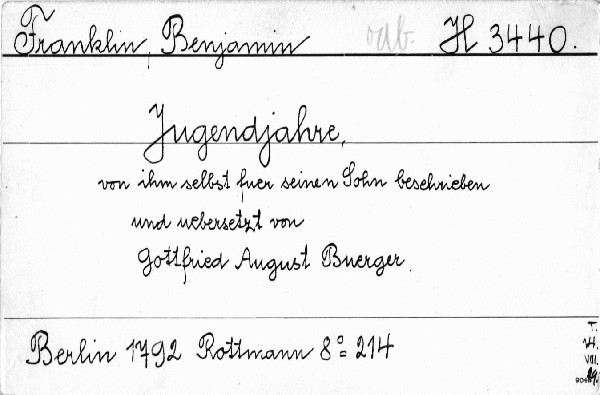 Franklin, Benjamin odb. H 3440.
Jugendjahre,
von ihm selbst fuer seinen Sohn beschrieben
und uebersetzt von
Gottfried August Buerger.
Berlin 1792 Rottmann 8° 214
T.
VII.